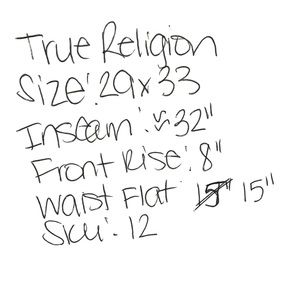 True Religion
Size: 29x33
Inseam: ~32"
Front Rise: 8"
Waist Flat 15" 15"
SKU: 12